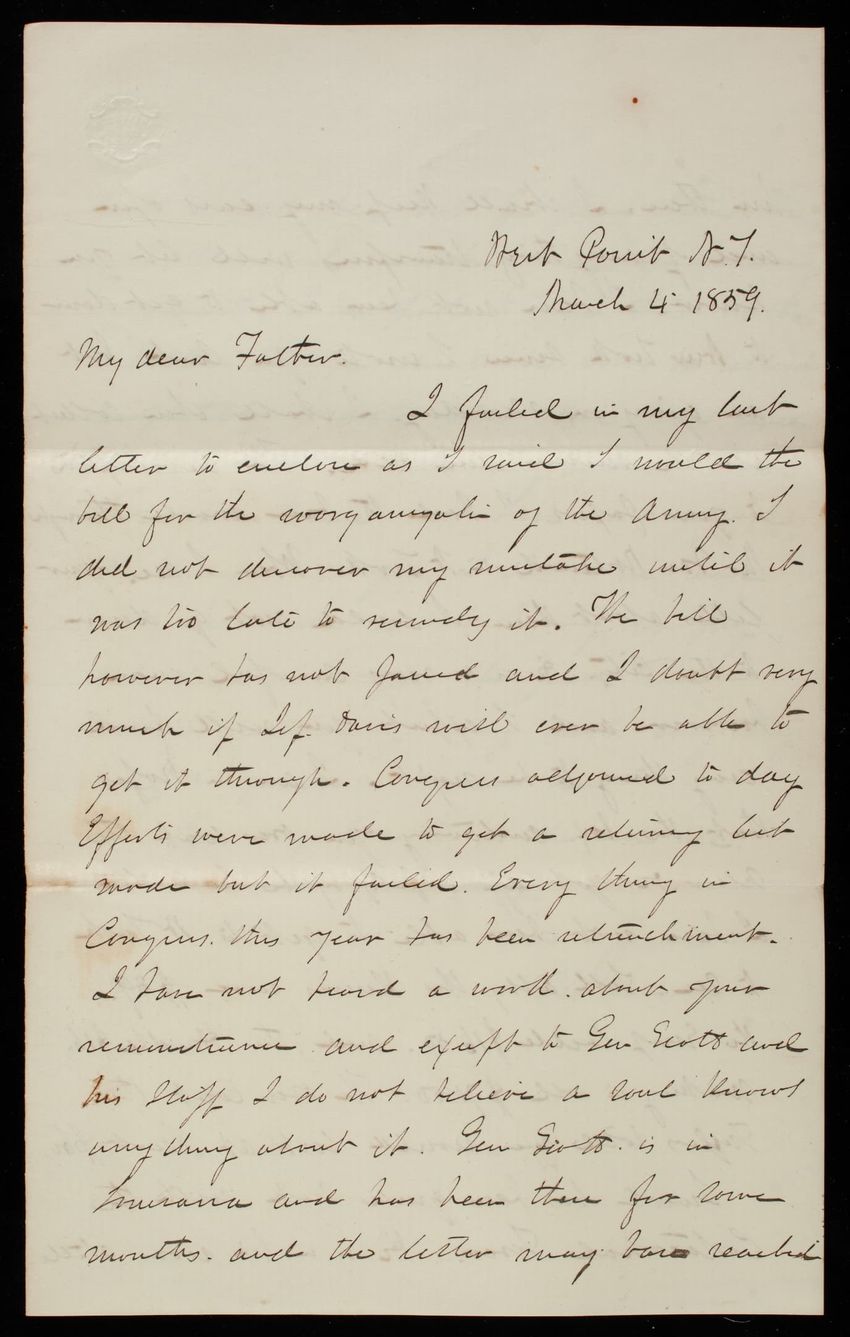 West Point N.Y.
March 4 1859.
My dear Father.
I failed in my last
letter to enclose as I said I would the
bill for the reorganizatin of the Army. I
did not discover my mistake until it
was too late to remedy it. The bill
however has not passed and I doubt very
much if Jef. Davis will ever be able to
get it through. Congress adjourned to day
Efforts were made to get a retiring list
made but it failed. Every thing in
Congress. this year has been retrenchment.
I have not heard a word. about your
remonstrance and except to Gen Scott and
his Staff I do not believe a soul knows
anything about it. Gen Scott. is in
Louisiana and has been there for some
months. and the letter may have reached